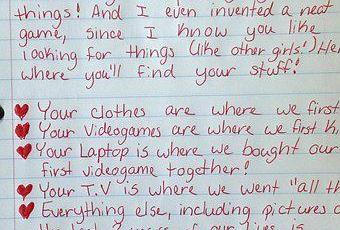 things! And I even invented a neat
game, since I know you like
looking for things (like other girls!) Her
where you'll find your stuff!
Your clothes are where we first
Your Videogames are where we first k
Your Laptop is where we bought our
first videogame together!
Your T.V is where we went "all th
Everything else, including pictures o